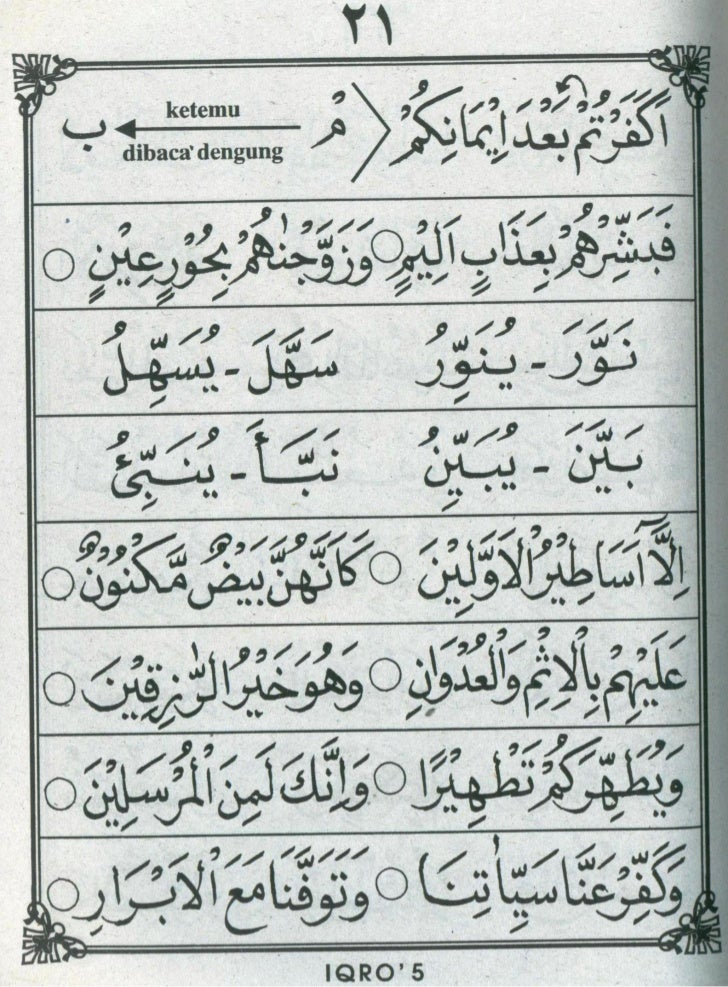 ٢١
اَكَفَرْتُمْ بَعْدَ اِيْمَانِكُمْ > مْ ketemu ب
dibaca' dengung
فَبَشِّرْهُمْ بِعَذَابٍ اَلِيْمٍ ○ وَزَوَّجْنٰهُمْ بِحُوْرٍ عِيْنٍ ○
نَوَّرَ - يُنَوِّرُ سَهَّلَ - يُسَهِّلُ
بَيَّنَ - يُبَيِّنُ نَبَّأَ - يُنَبِّئُ
اِلَّآ اَسَاطِيْرُ الْاَوَّلِيْنَ ○ كَاَنَّهُنَّ بَيْضٌ مَّكْنُوْنٌ ○
عَلَيْهِمْ بِالْاِثْمِ وَالْعُدْوَانِ ○ وَهُوَ خَيْرُ الرّٰزِقِيْنَ ○
وَيُطَهِّرَكُمْ تَطْهِيْرًا ○ وَاِنَّكَ لَمِنَ الْمُرْسَلِيْنَ ○
وَكَفِّرْ عَنَّا سَيِّاٰتِنَا ○ وَتَوَفَّنَا مَعَ الْاَبْرَارِ ○
IQRO' 5